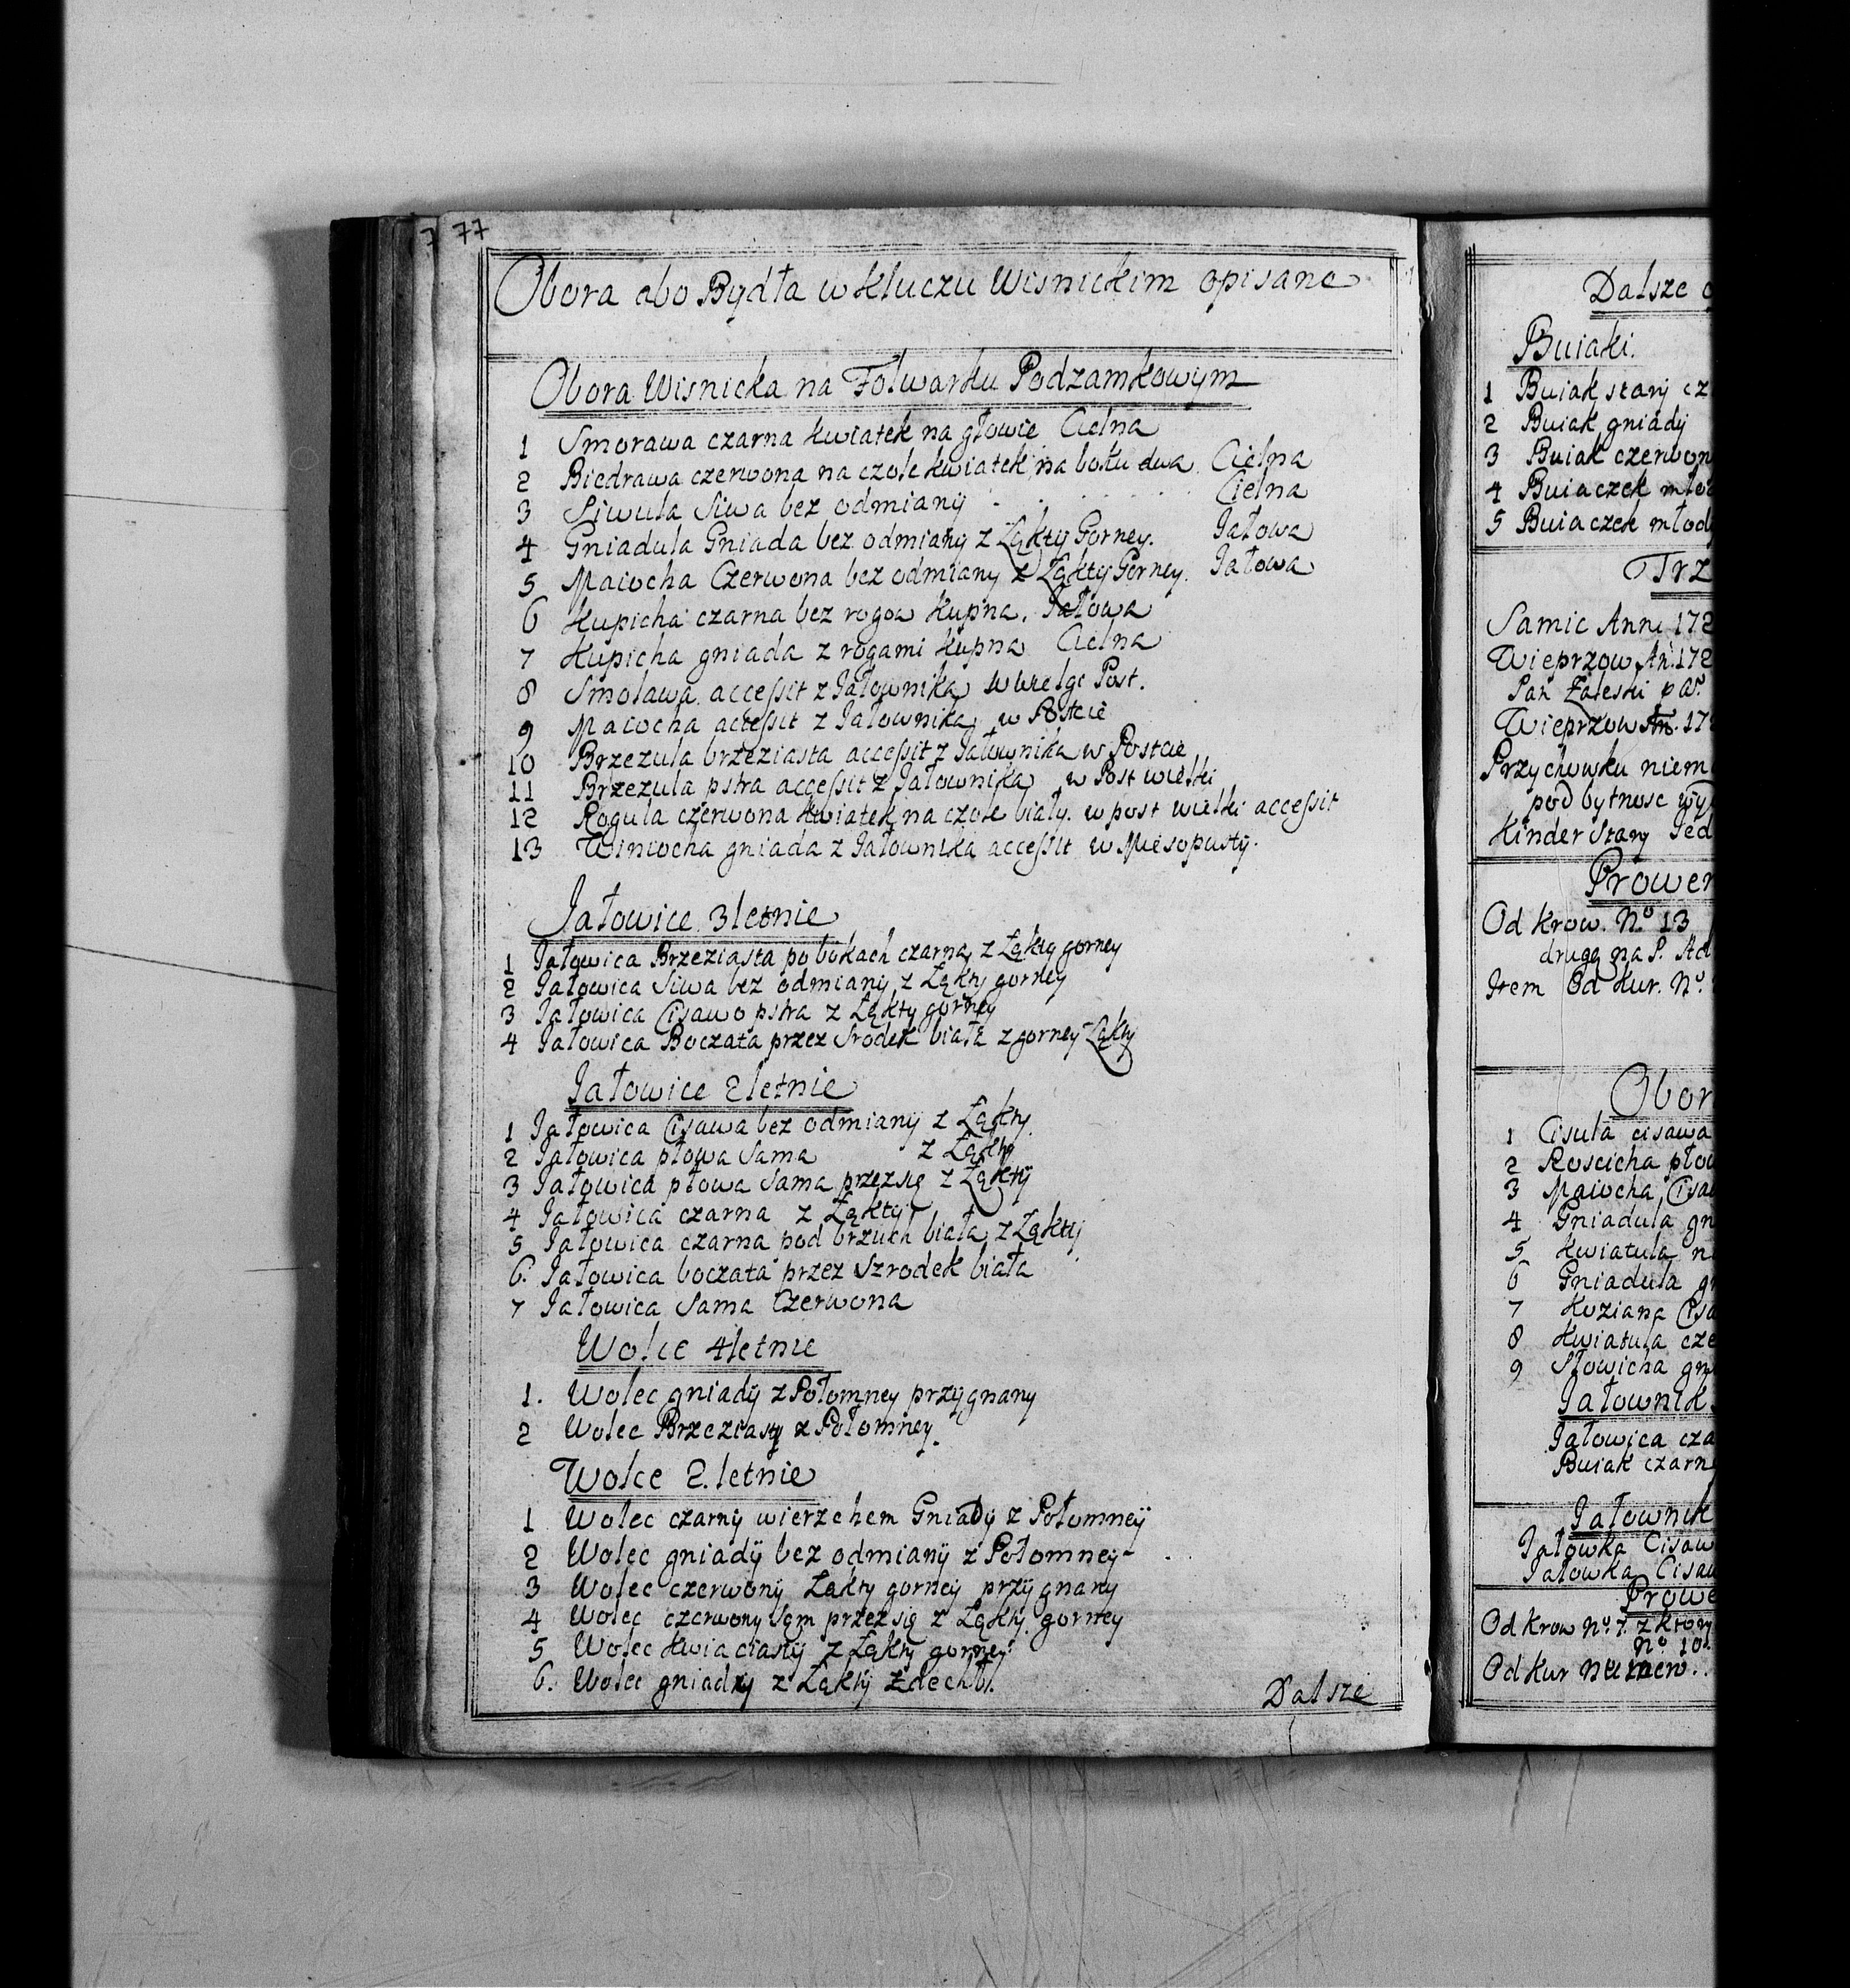 7 77
Obora abo Bydła w kluczu Wisnickim opisane
Obora Wisnicka na Folwarku Podzamkowym
1 Smorawa czarna kwiatek na głowie Cielna
2 Biedrawa czerwona na czole kwiatek na boku dwa Cielna
3 Siwula Siwa bez odmiany . . . . . . . Cielna
4 Gniadula Gniada bez odmiany z Łąkty Gorney. Jałowa
5 Maiocha Czerwona bez odmiany z Łąkty Gorney. Jałowa
6 Kupicha czarna bez rogow kupna. Jałowa
7 Kupicha gniada z rogami kupna Cielna
8 Smolawa accessit z Jałownika w wielgi Post.
9 Maiocha accessit z Jałownika w Poscie
10 Brzezula brzeziasta accessit z Jałownika w Poscie
11 Brzezula pstra accessit z Jałownika w Post wielki
12 Rogula czerwona kwiatek na czole biały. w post wielki accessit
13 Winiocha gniada z Jałownika accessit w Miesopusty.
Jałowice 3letnie
1 Jałowica Brzeziasta po bokach czarna z Łąkty gorney
2 Jałowica Siwa bez odmiany z Łąkty gorney
3 Jałowica Cisawo pstra z Łąkty gorney
4 Jałowica Boczata przez Srodek biała z gorney Łąkty
Jałowice 2letnie
1 Jałowica Cisawa bez odmiany z Łąkty
2 Jałowica płowa Sama z Łąkty
3 Jałowica płowa Sama przezsię z Łąkty
4 Jałowica czarna z Łąkty
5 Jałowica czarna pod brzuch biała z Łąkty
6. Jałowica boczata przez Szrodek biała
7 Jałowica Sama Czerwona
Wolce 4letnie
1. Wolec gniady z Połomney przygnany
2 Wolec Brzeziasty z Połomney.
Wolce 2.letnie
1 Wolec czarny wierzchem Gniady z Połomney
2 Wolec gniady bez odmiany z Połomney
3 Wolec czerwony Łakty gorney przygnany
4 Wolec czerwony Sam przezsię z Łąkty gorney
5 Wolec kwiaciasty z Łąkty gorney
6. Wolec gniady z Łąkty zdechł.
Dalsze
Dalsze
Buiaki.
1 Buiak stary
2 Buiak gniady
3 Buiak czerwon
4 Buiaczek
5 Buiaczek młod
Trz
Samic Anni 172
Wieprzow An. 172
Pan Zaleski
Wieprzow An. 17
Przychowku niem
pod bytnosc
Kinder Stary Jed
Prowen
Od krow. No. 13
drugą na S.
Item Od kur. No.
Obor
1 Cisula cisawa
2 Roscicha płow
3 Maiocha Cisa
4 Gniadula gn
5 Kwiatula
6 Gniadula
7 Koziana Cisa
8 Kwiatula cze
9 Słowicha gn
Jałownik
Jałowica cza
Buiak czarn
Jałownik
Jałowka Cisaw
Jałowka Cisaw
Prowe
Od krow No. 7. z ktory
No. 10.
Od kur